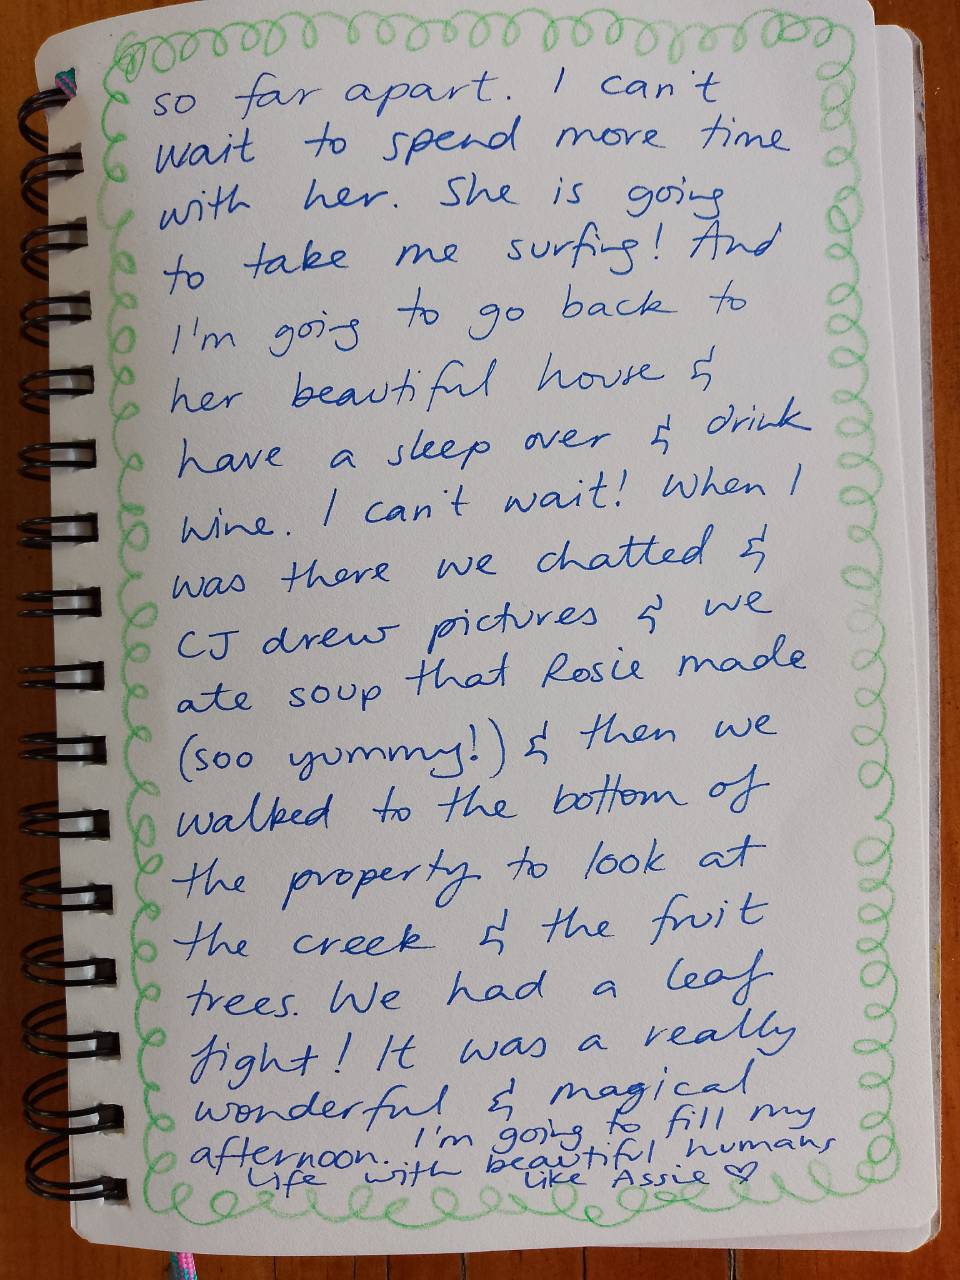 so far apart. I can't
wait to spend more time
with her. She is going
to take me surfing! And
I'm going to go back to
her beautiful house &
have a sleep over & drink
wine. I can't wait! When I
was there we chatted &
CJ drew pictures & we
ate soup that Rosie made
(soo yummy!) & then we
walked to the bottom of
the property to look at
the creek & the fruit
trees. We had a leaf
fight! It was a really
wonderful & magical
afternoon. I'm going to fill my
life with beautiful humans
like Assie ♡